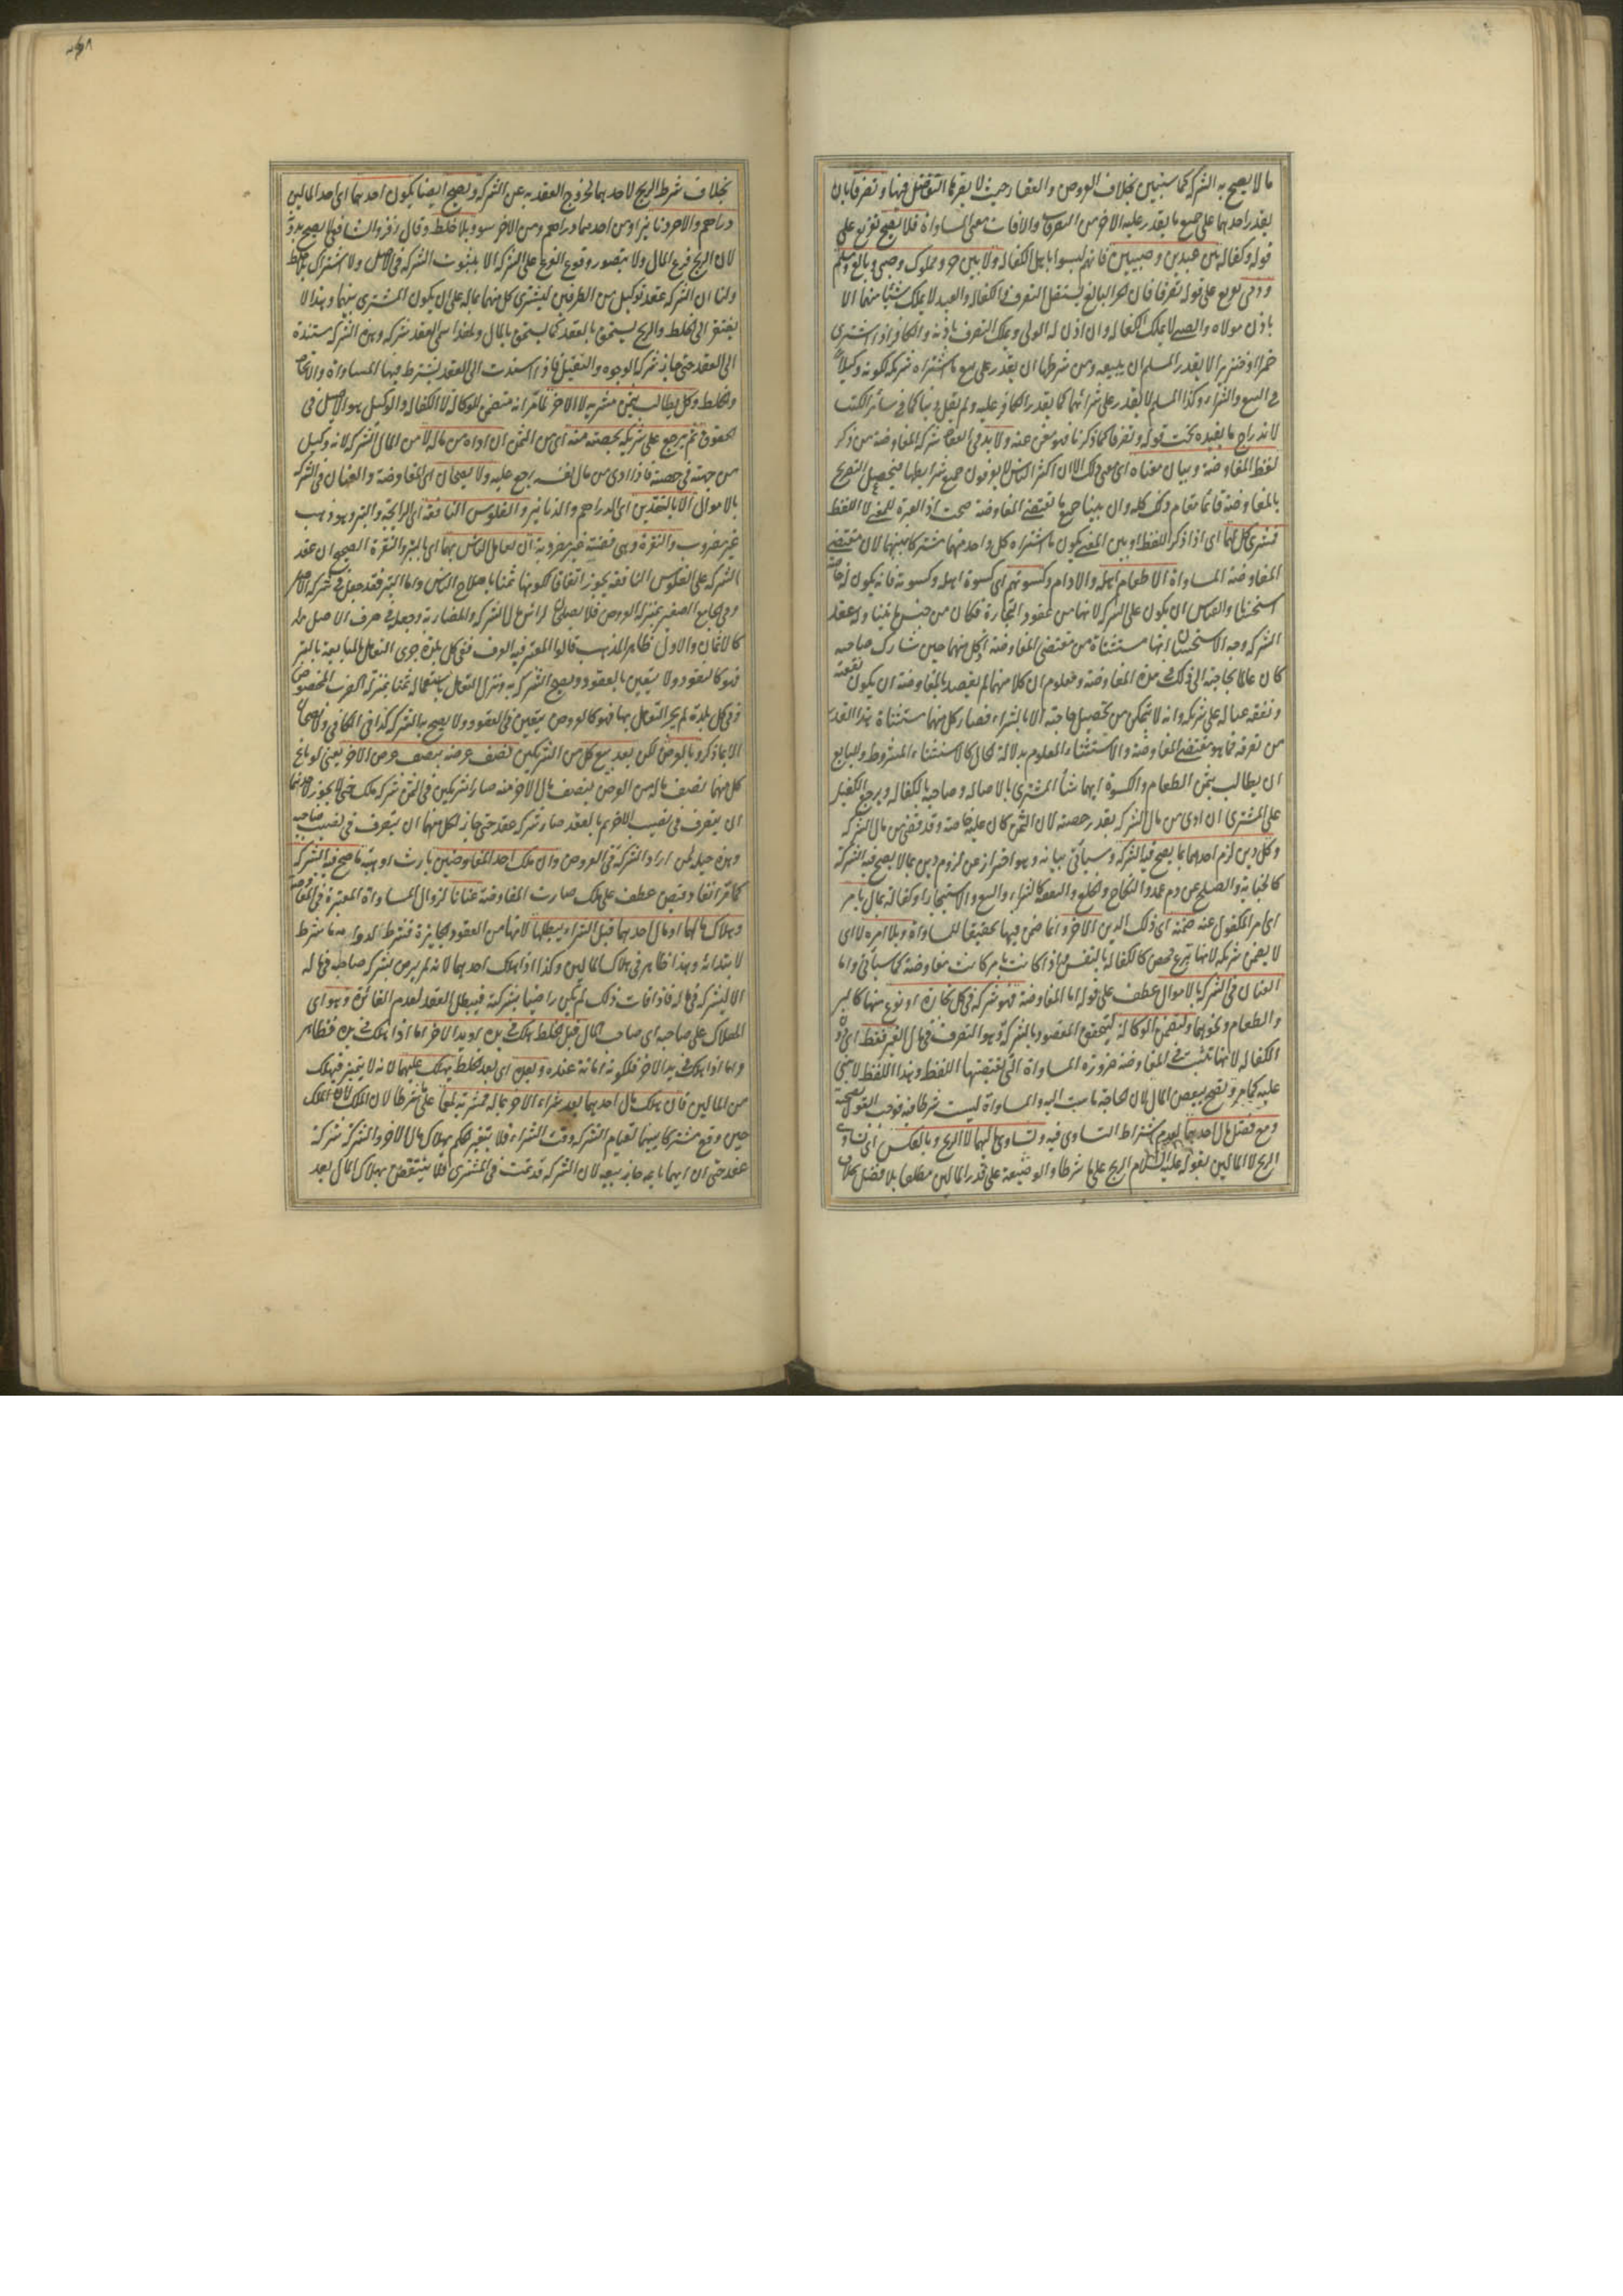 ما لا يصح به الشركة كما سيتبين بخلاف العروض والعقار حيث لا يضرها التفاضل فيها وتصرفا بان
يقدر احدهما على جميع ما يقدر عليه الاخر من التصرفات والافات معنى المساواة فلا يصح تفريع على
قوله وكفالة بين عبدين وصبيين فانهم ليسوا باهل الكفالة ولا بين حر ومملوك وصبي وبالغ ومسلم
وذمي تفريع على قوله تصرفا فان الحر البالغ يستقل التصرف والكفالة والعبد لا يملك شيئا منهما الا
باذن مولاه والصبي لا يملك الكفالة وان اذن له الولي ويملك التصرف باذنه والكافر اذا اشترى
خمرا او خنزيرا لا يقدر المسلم ان يبيعه ومن شرطها ان يقدر على بيع ما اشتراه شريكه لكونه وكيلا له
في البيع والشراء وكذا المسلم لا يقدر على شرائهما كما يقدر الكافر عليه ولم يقل ودينا كما في سائر الكتب
لاندراج ما يفيده تحت قوله وتصرفا كما ذكرنا فهو مغن عنه ولا بد في انعقاد شركة المفاوضة من ذكر
لفظ المفاوضة وبيان معناه اي معنى ذلك لان اكثر الناس لا يعرفون جميع شرايطها فيحصل التصريح
بالمفاوضة قائما مقام ذلك كله وان بينا جميع ما تقتضي المفاوضة صحت اذ العبرة للمعنى لا اللفظ
فمشرى كل لهما اي اذا ذكر اللفظ او بين المعنى يكون ما اشتراه كل واحد منهما مشتركا بينهما لان مقتضى
المفاوضة المساواة الا طعام اهله والادام وكسوتهم اي كسوة اهله وكسوته فانه يكون له خاصة
استحسانا والقياس ان يكون على الشركة لانها من عقود التجارة فكان من جنس ما يتناوله عقد
الشركة وجه الاستحسان انها مستثناة من مقتضى المفاوضة اذ كل منهما حين شارك صاحبه
كان عالما بحاجته الى ذلك في مدة المفاوضة ومعلوم ان كلا منهما لم يقصد بالمفاوضة ان يكون نفقته
ونفقة عياله على شريكه وانه لا يتمكن من تحصيل حاجته الا بالشراء فصار كل منهما مستثناة بهذا القدر
من تصرفه مما هو مقتضى المفاوضة والاستثناء المعلوم بدلالة الحال كالاستثناء المشروط وللبايع
ان يطالب بثمن الطعام والكسوة ايهما شاء المشترى بالاصالة وصاحبه بالكفالة ويرجع الكفيل
على المشترى ان ادى من مال الشركة بقدر حصته لان الثمن كان عليه خاصة وقد قضى من مال الشركة
وكل دين لزم احدهما بما يصح فيه الشركة وسيأتي بيانه وهو احتراز عن لزوم دين بما لا يصح فيه الشركة
كالجناية والصلح عن دم عمد والنكاح والخلع والنفقة كالشراء والبيع والاستيجار او كفالة بمال بامر
اي امر المكفول عنه ضمنه اي ذلك الدين الاخر وانما ضمن فيها تحقيقا للمساواة وبلا امره لا اي
لا يضمن شريكه لانها تبرع محض كالكفالة بالنفس واذا كانت بامر كانت مفاوضة كما سيأتي واما
العنان في الشركة بالاموال عطف على قوله اما المفاوضة فهو شركة في كل تجارة او نوع منها كالبر
والطعام ونحوهما وتتضمن الوكالة ليتحقق المقصود بالشركة وهو التصرف في مال الغير فقط اي دون
الكفالة لانها تثبت في المفاوضة ضرورة المساواة التي يقتضيها اللفظ وهذا اللفظ لا ينبئ
عليه كما مر ويصح ببعض المال لان الحاجة ماست اليه والمساواة ليست شرطا فيه فوجب القول بصحته
ومع فضل مال احدهما لعدم اشتراط التساوي فيه وتساوي ماليهما لا الربح وبالعكس اي تساوى
الربح لا المالين لقوله عليه السلام الربح على ما شرطا والوضيعة على قدر المالين مطلقا بلا فضل بخلاف
بخلاف شرط الربح لاحدهما لخروج العقد به عن الشركة ويصح ايضا بكون احدهما اي احد المالين
دراهم والاخر دنانير او من احدهما دراهم ومن الاخر سود وبلا خلط وقال زفر والشافعي لا يصح بدونه
لان الربح فرع المال ولا يتصور وقوع الفرع على الشركة الا بثبوت الشركة في الاصل ولا اشتراك بلا خلط
ولنا ان الشركة عقد توكيل من الطرفين ليشترى كل منهما بماله على ان يكون المشترى بينهما وهذا لا
يفتقر الى الخلط والربح يستحق بالعقد كما يستحق بالمال ولهذا سمى العقد شركة وهذه الشركة مستندة
الى العقد حتى جاز شركة الوجوه والتقبل فاذا استندت الى العقد لم يشترط فيها المساواة والاتحاد
والخلط وكل يطالب بثمن مشريه لا الاخر لما مر انه متضمن للوكالة لا الكفالة والوكيل هو الاصل في
الحقوق ثم يرجع على شريكه بحصته منه اي من الثمن ان اداه من ماله لا من المال الشركة لانه وكيل
من جهته في حصته فاذا ادى من مال نفسه يرجع عليه ولا يصحان اي المفاوضة والعنان في الشركة
بالاموال الا بالنقدين اي الدراهم والدنانير والفلوس النافقة اي الرايجة والتبر وهو ذهب
غير مضروب والنقرة وهي فضة غير مضروبة ان تعامل الناس بهما اي بالتبر والنقرة الصحيح ان عقد
الشركة على الفلوس النافقة يجوز اتفاقا لكونها ثمنا باصطلاح الناس واما التبر فقد جعل في شركة الاصل
وفي الجامع الصغير بمنزلة العروض فلا يصلح راس مال الشركة والمضاربة وجعل في صرف الاصل
كالاثمان والاول ظاهر المذهب قالوا المعتبر فيه العرف ففي كل بلدة جرى التعامل بالمبايعة بالتبر
فهو كالنقود ولا يتعين بالعقود ويصح الشركة به ونزل التعامل باستعماله ثمنا بمنزلة الضرب المخصوص
وفي كل بلدة لم يجر التعامل بها فهو كالعروض يتعين في العقود ولا يصح به الشركة كذا في الكافي ولا يصحان
الا بما ذكر وبالعرض لكن بعد بيع كل من الشريكين نصف عرضه بنصف عرض الاخر يعني لو باع
كل منهما نصف ماله من العروض بنصف مال الاخر منه صارا شريكين في الثمن شركة ملك حتى لا يجوز لاحدهما
ان يتصرف في نصيب الاخر ثم بالعقد صار شركة عقد حتى جاز لكل منهما ان يتصرف في نصيب صاحبه
وهذه حيلة لمن اراد الشركة في العروض وان ملك احد المفاوضين بارث او هبة ما صح فيه الشركة
كما مر انفا وقبض عطف على ملك صارت المفاوضة عنانا لزوال المساواة المعتبرة في المفاوضة
وهلاك مالهما او مال احدهما قبل الشراء يبطلها لانها من العقود الجايزة فشرط لدوامه ما شرط
لابتدائه وهذا ظاهر في هلاك المالين وكذا اذا هلك احدهما لانه لم يرض بشركة صاحبه في ماله
الا ليشركه في ماله فاذا فات ذلك لم يكن راضيا بشركته فيبطل العقد لعدم الفائدة وهو اي
الهلاك على صاحبه اي صاحب المال قبل الخلط هلك في يده او يد الاخر اما اذا هلك في يده فظاهر
واما اذا هلك في يد الاخر فلكونه امانة عنده وبعده اي بعد الخلط يهلك عليهما لانه لا يتميز فيهلك
من المالين فان هلك مال احدهما بعد شراء الاخر بماله فمشريه لهما على ما شرطا لان الملك
حين وقع مشتركا بينهما لقيام الشركة وقت الشراء فلا يتغير الحكم بهلاك مال الاخر والشركة شركة
عقد حتى ان ايهما باعه جاز بيعه لان الشركة قد تمت في المشترى فلا ينتقض بهلاك المال بعد